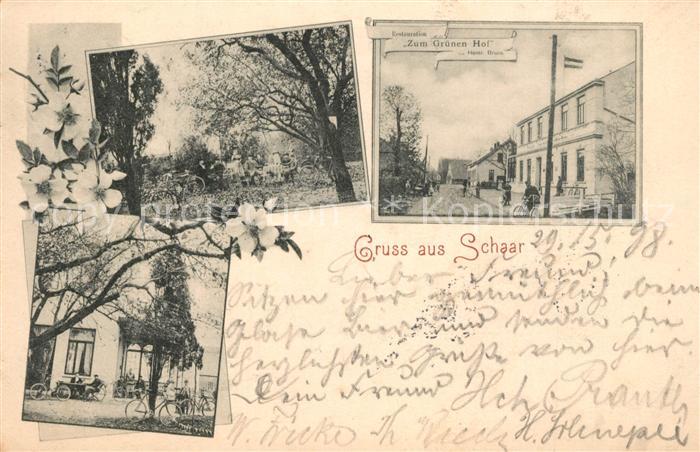 Restauration
„Zum Grünen Hof"
Gruss aus Schaar 29./5. 98.
Lieber Freund!
Sitzen hier gemüthlich beim
Glase Bier und senden die
herzlichsten Grüße von hier
Dein Freund
W. Fricke